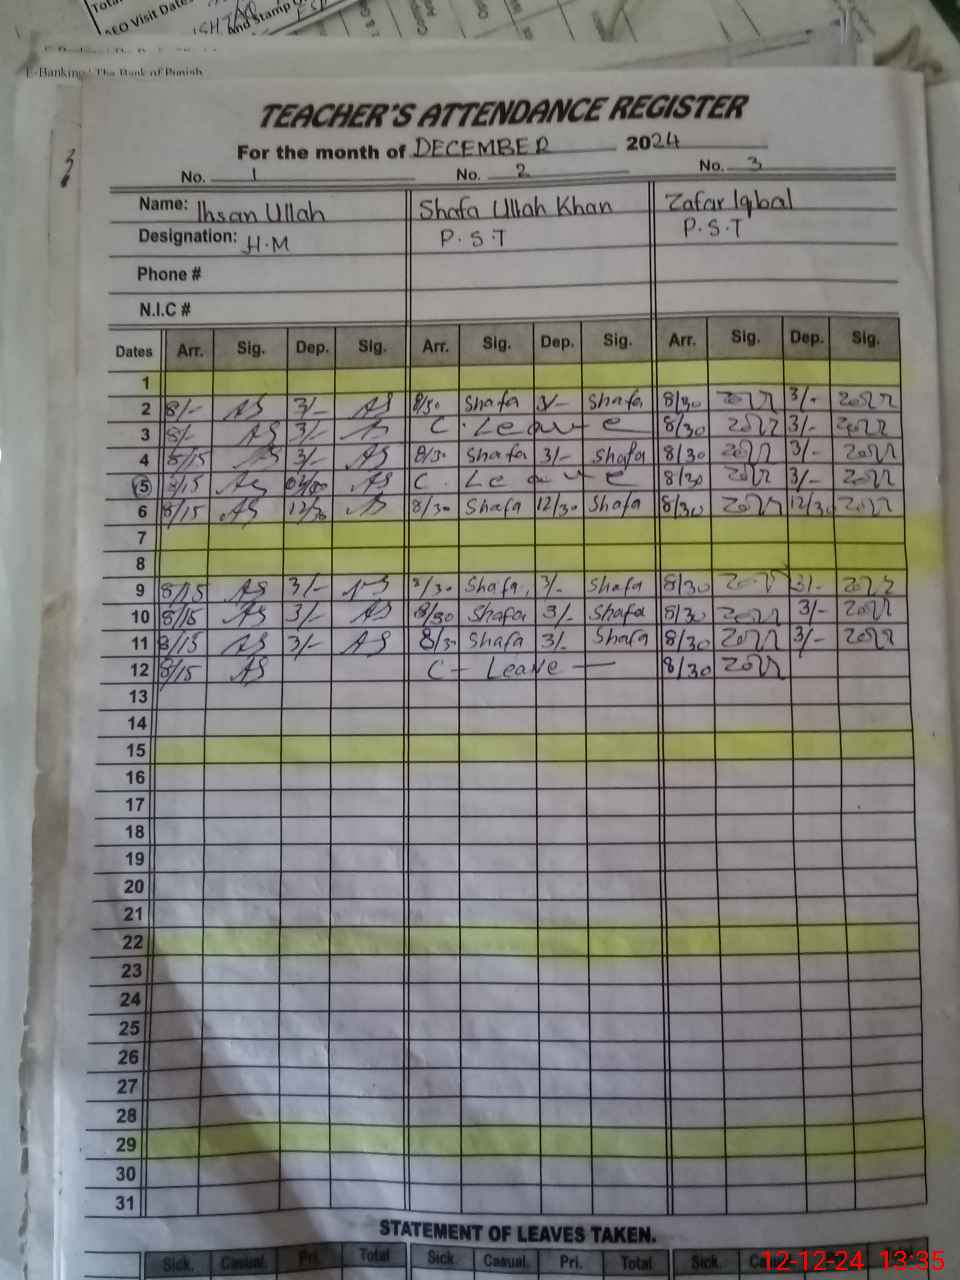 AEO Visit Date
and Stamp
E-Banking The Bank of Punjab
TEACHER'S ATTENDANCE REGISTER
For the month of DECEMBER 2024
No. 1 No. 2 No. 3
Name: Ihsan Ullah Shafa Ullah Khan Zafar Iqbal
Designation: H.M P.S.T P.S.T
Phone #
N.I.C #
Dates Arr. Sig. Dep. Sig. Arr. Sig. Dep. Sig. Arr. Sig. Dep. Sig.
1
2 8/- 3/- 8/30 Shafa 3/- Shafa 8/30 3/-
3 8/- 3/- C. Leave 8/30 3/-
4 8/15 3/- 8/30 Shafa 3/- Shafa 8/30 3/-
5 8/15 C. Leave 8/30 3/-
6 8/15 12/30 8/30 Shafa 12/30 Shafa 8/30 12/30
7
8
9 8/15 3/- 8/30 Shafa 3/- Shafa 8/30 3/-
10 8/15 3/- 8/30 Shafa 3/- Shafa 8/30 3/-
11 8/15 3/- 8/30 Shafa 3/- Shafa 8/30 3/-
12 8/15 C - Leave - 8/30
13
14
15
16
17
18
19
20
21
22
23
24
25
26
27
28
29
30
31
STATEMENT OF LEAVES TAKEN.
Sick. Casual. Pri. Total Sick. Casual. Pri. Total Sick.
12-12-24 13:35